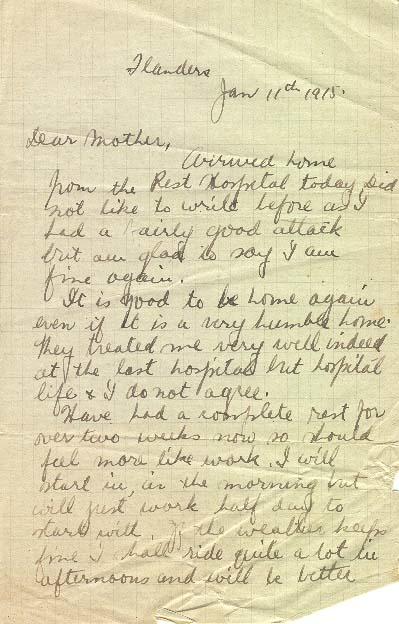 Flanders
Jan 11th 1915.
Dear Mother,
Arrived home
from the Rest Hospital today, Did
not like to write before as I
had a fairly good attack
but am glad to say I am
fine again.
It is good to be home again
even if it is a very humble home.
They treated me very well indeed
at the last hospital but hospital
life & I do not agree.
Have had a complete rest for
over two weeks now so should
feel more like work. I will
start in, in the morning but
will just work half day to
start with. If the weather keeps
fine I shall ride quite a lot in
afternoons and will be better